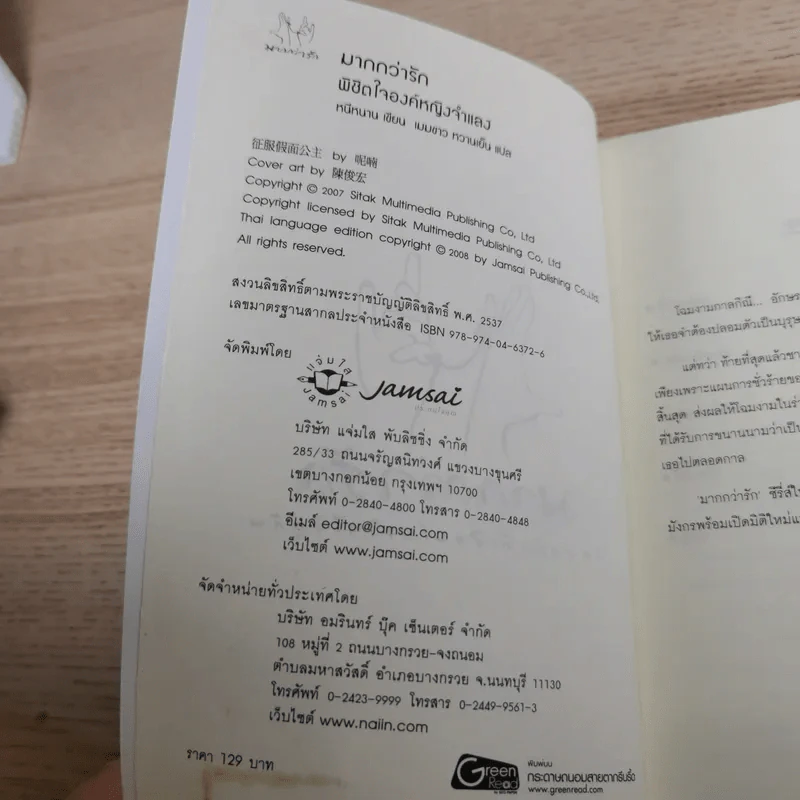 มากกว่ารัก
มากกว่ารัก
พิชิตใจองค์หญิงจำแลง
หนีหนาน เขียน เมฆขาว หวานเย็น แปล
征服假面公主 by 呢喃
Cover art by 陳俊宏
Copyright © 2007 Sitak Multimedia Publishing Co, Ltd
Copyright licensed by Sitak Multimedia Publishing Co, Ltd
Thai language edition copyright © 2008 by Jamsai Publishing Co.,Ltd.
All rights reserved.
สงวนลิขสิทธิ์ตามพระราชบัญญัติลิขสิทธิ์ พ.ศ. 2537
เลขมาตรฐานสากลประจำหนังสือ ISBN 978-974-04-6372-6
จัดพิมพ์โดย
แจ่มใส
Jamsai
Jamsai
บริษัท แจ่มใส พับลิชชิ่ง จำกัด
285/33 ถนนจรัญสนิทวงศ์ แขวงบางขุนศรี
เขตบางกอกน้อย กรุงเทพฯ 10700
โทรศัพท์ 0-2840-4800 โทรสาร 0-2840-4848
อีเมล์ editor@jamsai.com
เว็บไซต์ www.jamsai.com
จัดจำหน่ายทั่วประเทศโดย
บริษัท อมรินทร์ บุ๊ค เซ็นเตอร์ จำกัด
108 หมู่ที่ 2 ถนนบางกรวย-จงถนอม
ตำบลมหาสวัสดิ์ อำเภอบางกรวย จ.นนทบุรี 11130
โทรศัพท์ 0-2423-9999 โทรสาร 0-2449-9561-3
เว็บไซต์ www.naiin.com
ราคา 129 บาท
Green
Read
พิมพ์บน
กระดาษถนอมสายตากรีนรี้ด
www.greenread.com
โฉมงามกาลกิณี... อักษร
ให้เธอจำต้องปลอมตัวเป็นบุรุษ
แต่ทว่า ท้ายที่สุดแล้วชา
เพียงเพราะแผนการชั่วร้ายขอ
สิ้นสุด ส่งผลให้โฉมงามในร่า
ที่ได้รับการขนานนามว่าเป็น
เธอไปตลอดกาล
'มากกว่ารัก' ซีรี่ส์ใ
มังกรพร้อมเปิดมิติใหม่แ